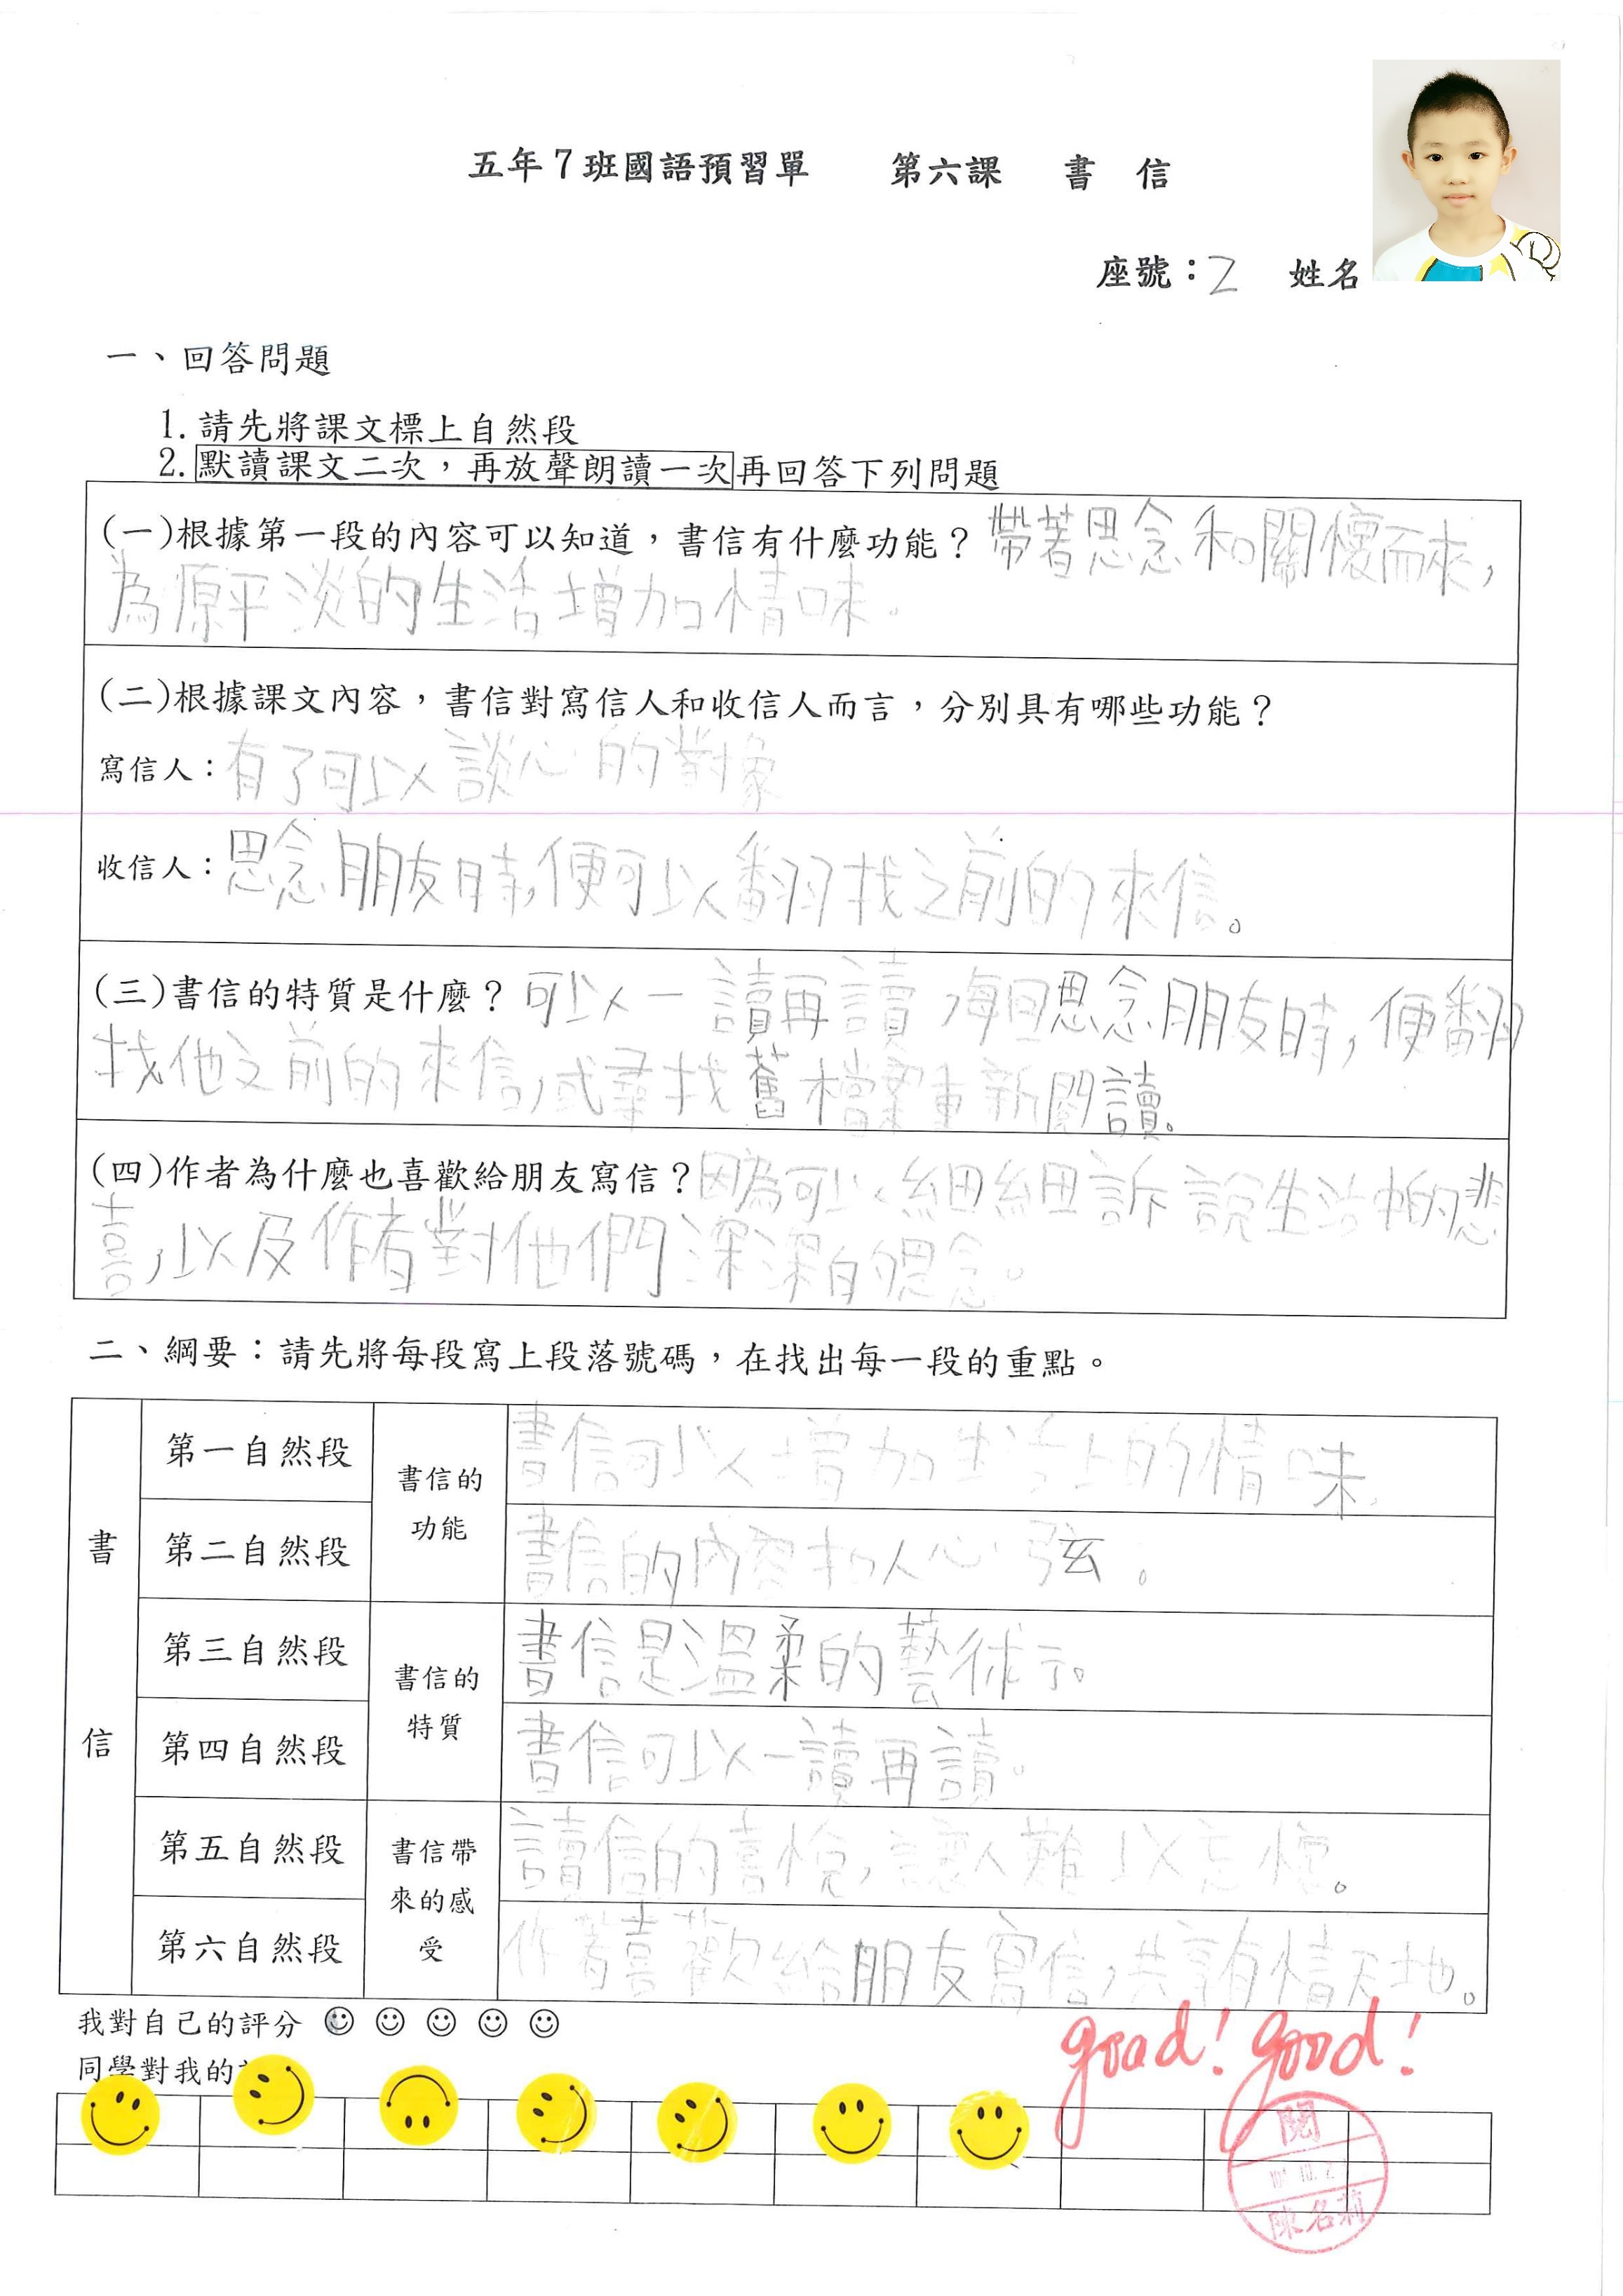 五年7班國語預習單 第六課 書信
座號：2 姓名
一、回答問題
1.請先將課文標上自然段
2.默讀課文二次，再放聲朗讀一次再回答下列問題
(一)根據第一段的內容可以知道，書信有什麼功能？帶著思念和關懷而來，
為原平淡的生活增加情味。
(二)根據課文內容，書信對寫信人和收信人而言，分別具有哪些功能？
寫信人：有了可以談心的對像
收信人：思念朋友時，便可以翻找之前的來信。
(三)書信的特質是什麼？可以一讀再讀 每回思念朋友時，便翻
找他之前的來信，或尋找舊檔案重新閱讀。
(四)作者為什麼也喜歡給朋友寫信？因為可以細細訴說生活中的悲
喜，以及作者對他們深深的思念。
二、綱要：請先將每段寫上段落號碼，在找出每一段的重點。
書信
第一自然段 書信的功能 書信可以增加生活上的情味
第二自然段 書信的內容扣人心弦。
第三自然段 書信的特質 書信是溫柔的藝術。
第四自然段 書信可以一讀再讀。
第五自然段 書信帶來的感受 讀信的喜悅，讓人難以忘懷。
第六自然段 作者喜歡給朋友寫信，共享有情天地。
我對自己的評分
同學對我的
good! good!
閱
陳名莉